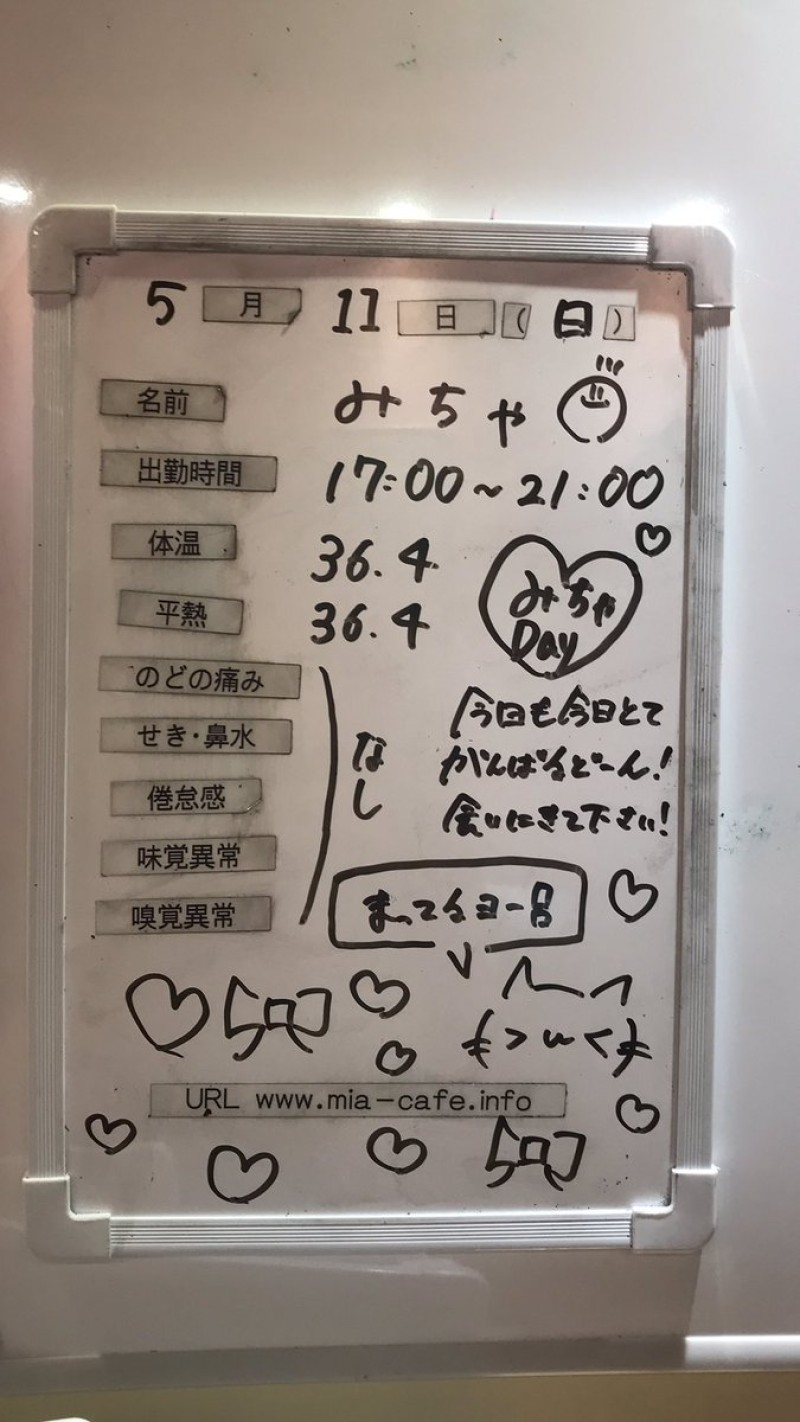 5月11日(日)
名前 みちゃ
出勤時間 17:00~21:00
体温 36.4
平熱 36.4
みちゃ
Day
のどの痛み
せき・鼻水
倦怠感
味覚異常
嗅覚異常
なし
今日も今日とて
がんばるどーん!
会いにきて下さい!
まってるヨー呂
URL www.mia-cafe.info